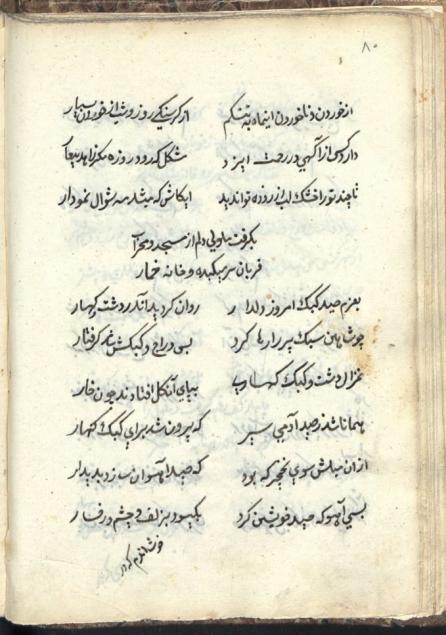 ۸۰
از خوردن و ناخوردن اینماه به تنگم از گرسنگی روز و شب از خوردن بسیار
دارد کس از آگهی در رحمت ایزد مشکل که رود روزه
تا چند تو را خشک لب از روزه توان دید ایکاش که میشد مه شوال نمودار
بگرفت دلم از مسجد و محراب
قربان سر میکده و خانه خمار
بعزم صید کبک امروز دلدار روان گردید اندر دشت و کهسار
چو شاهین سبک پر رزارها کرد بسی دراج و کبکش شد گرفتار
غزال دشت و کبک کهساری بپای آنگل افتادند چون خار
همانا شد ز صید آدمی سیر که بیرون شد برای کبک کهسار
از آن میلش سوی نخجیر که بود که صید آهوان سازد بدیدار
بسی آهو که صید خویش کرد بگیسو و بزلف و چشم و رفتار